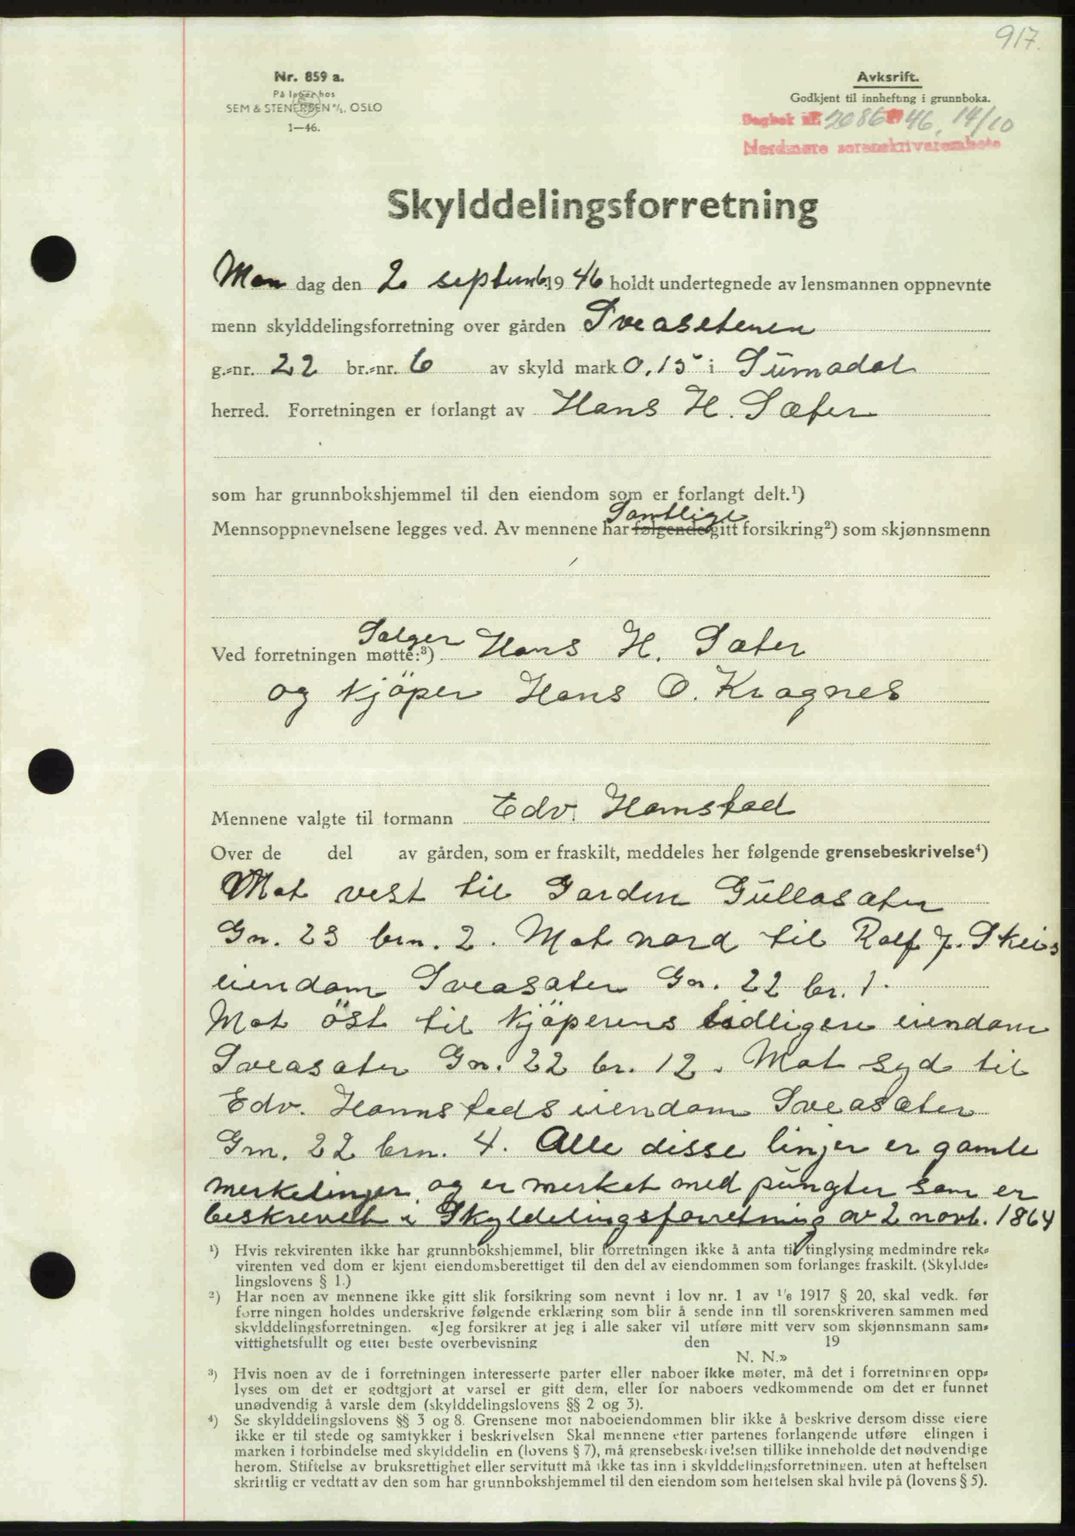 917.
Nr. 859 a.
På lager hos
SEM & STENERSEN A/S, OSLO
1—46.
Avskrift.
Godkjent til innhefting i grunnboka.
Dagbok nr 2086 46, 14/10
Nordmøre sorenskriverembete
Skylddelingsforretning
Man dag den 2 septemb. 1946 holdt undertegnede av lensmannen oppnevnte
menn skylddelingsforretning over gården Sveaseteren
g.-nr. 22 br.-nr. 6 av skyld mark 0,15 i Surnadal
herred. Forretningen er forlangt av Hans H. Sæter
som har grunnbokshjemmel til den eiendom som er forlangt delt.¹)
Samtlige
Mennsoppnevnelsene legges ved. Av mennene har følgende gitt forsikring²) som skjønnsmenn
Ved forretningen møtte:³) Selger Hans H. Sæter
og kjöper Hans O. Kragnes
Mennene valgte til formann Edv. Hamstad
Over de del av gården, som er fraskilt, meddeles her følgende grensebeskrivelse⁴)
Mot vest til Garden Gullasæter
Gn. 23 brn. 2. Mot nord til Rolf J. Skeis
eiendom Sveasæter Gn. 22 br. 1.
Mot öst til kjöperens tidligere eiendom
Sveasæter Gn. 22 br. 12. Mot syd til
Edv. Hamnstads eiendom Sveasæter
Gn. 22 brn. 4. Alle disse linjer er gamle
merkelinjer og er merket med pungter som er
beskrevet i Skyldelingsforretning av 2 novb. 1864
¹) Hvis rekvirenten ikke har grunnbokshjemmel, blir forretningen ikke å anta til tinglysing medmindre rek-
virenten ved dom er kjent eiendomsberettiget til den del av eiendommen som forlanges fraskilt. (Skyldde-
lingslovens § 1.)
²) Har noen av mennene ikke gitt slik forsikring som nevnt i lov nr. 1 av 1/6 1917 § 20, skal vedk. før
forretningen holdes underskrive følgende erklæring som blir å sende inn til sorenskriveren sammen med
skylddelingsforretningen. «Jeg forsikrer at jeg i alle saker vil utføre mitt verv som skjønnsmann sam-
vittighetsfullt og etter beste overbevisning den 19
N. N.»
³) Hvis noen av de i forretningen interesserte parter eller naboer ikke møter, må det i forretningen opp-
lyses om det er godtgjort at varsel er gitt dem, eller for naboers vedkommende om det er funnet
unødvendig å varsle dem (skylddelingslovens §§ 2 og 3).
⁴) Se skylddelingslovens §§ 3 og 8. Grensene mot naboeiendommen blir ikke å beskrive dersom disse eiere
ikke er til stede og samtykker i beskrivelsen Skal mennene etter partenes forlangende utføre elingen i
marken i forbindelse med skylddelin en (lovens § 7), må grensebeskrivelsen tillike inneholde det nødvendige
herom. Stiftelse av bruksrettighet eller servitutt må ikke tas inn i skylddelingsforretningen. uten at heftelsen
skriftlig er vedtatt av den som har grunnbokshjemmel til den eiendom som heftelsen skal hvile på (lovens § 5).